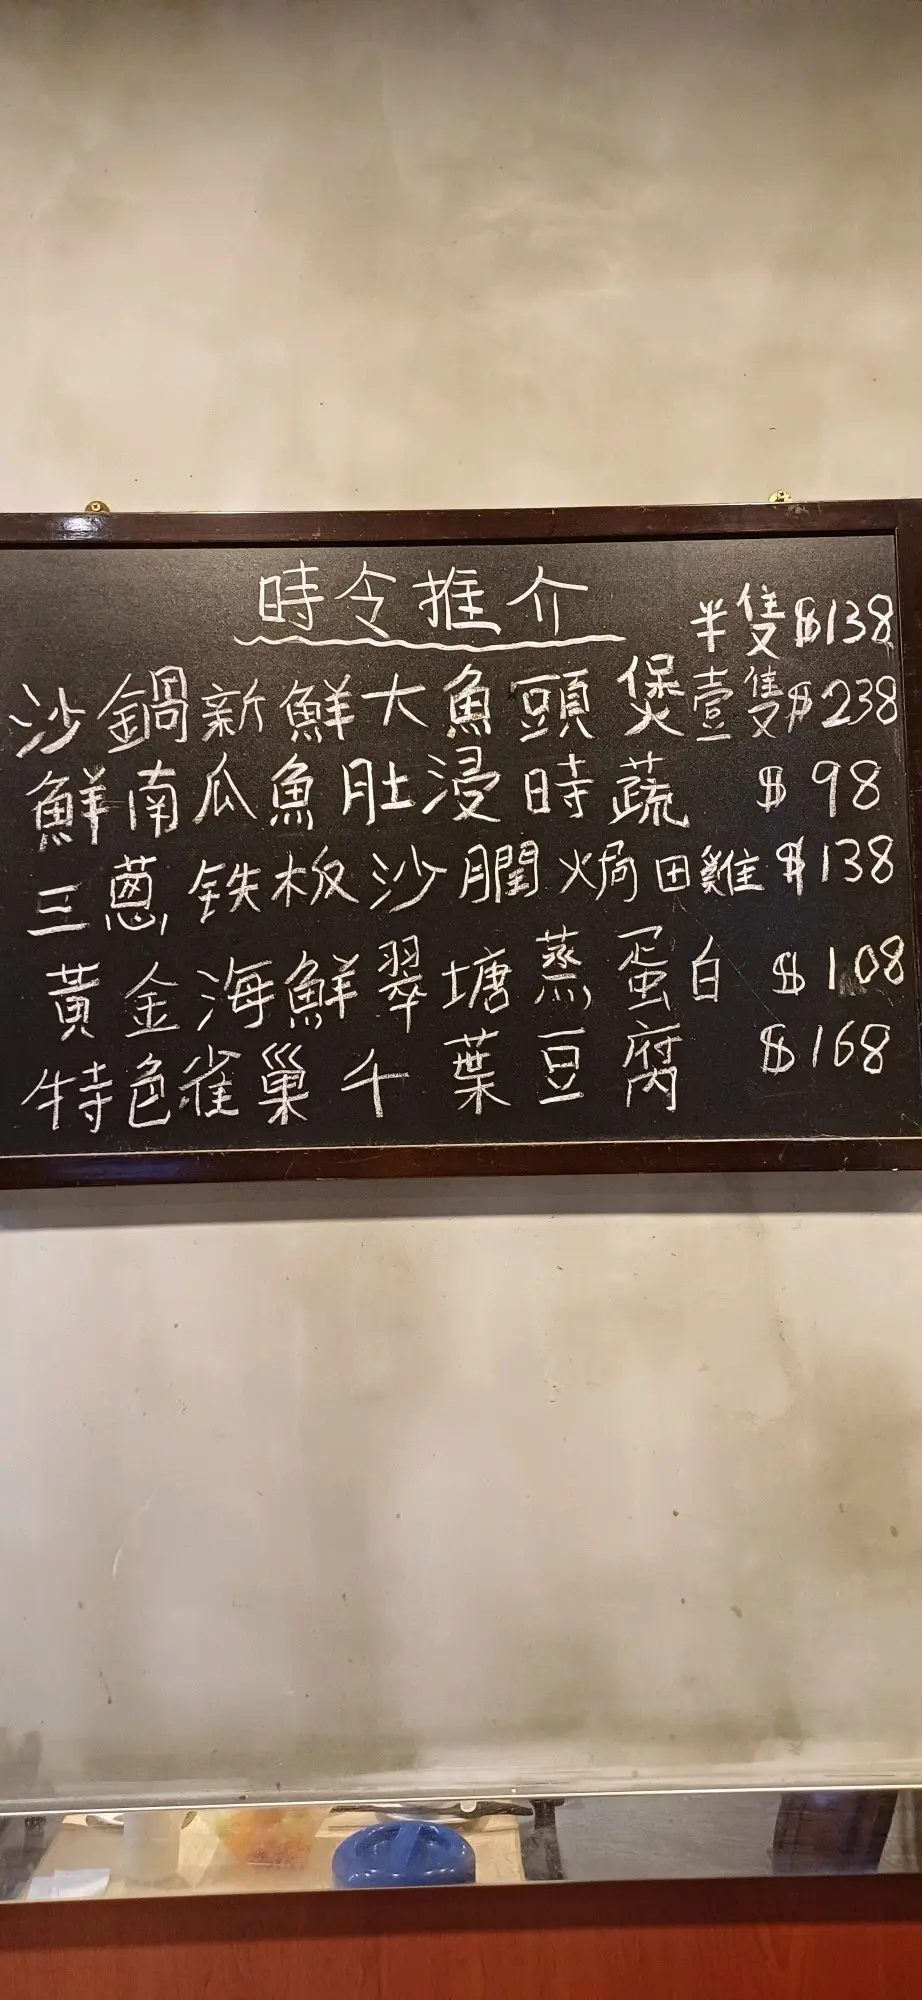 時令推介
半隻$138
沙鍋新鮮大魚頭煲壹隻$238
鮮南瓜魚肚浸時蔬 $98
三蔥铁板沙膶焗田雞 $138
黃金海鮮翠塘蒸蛋白 $108
特色雀巢千葉豆腐 $168